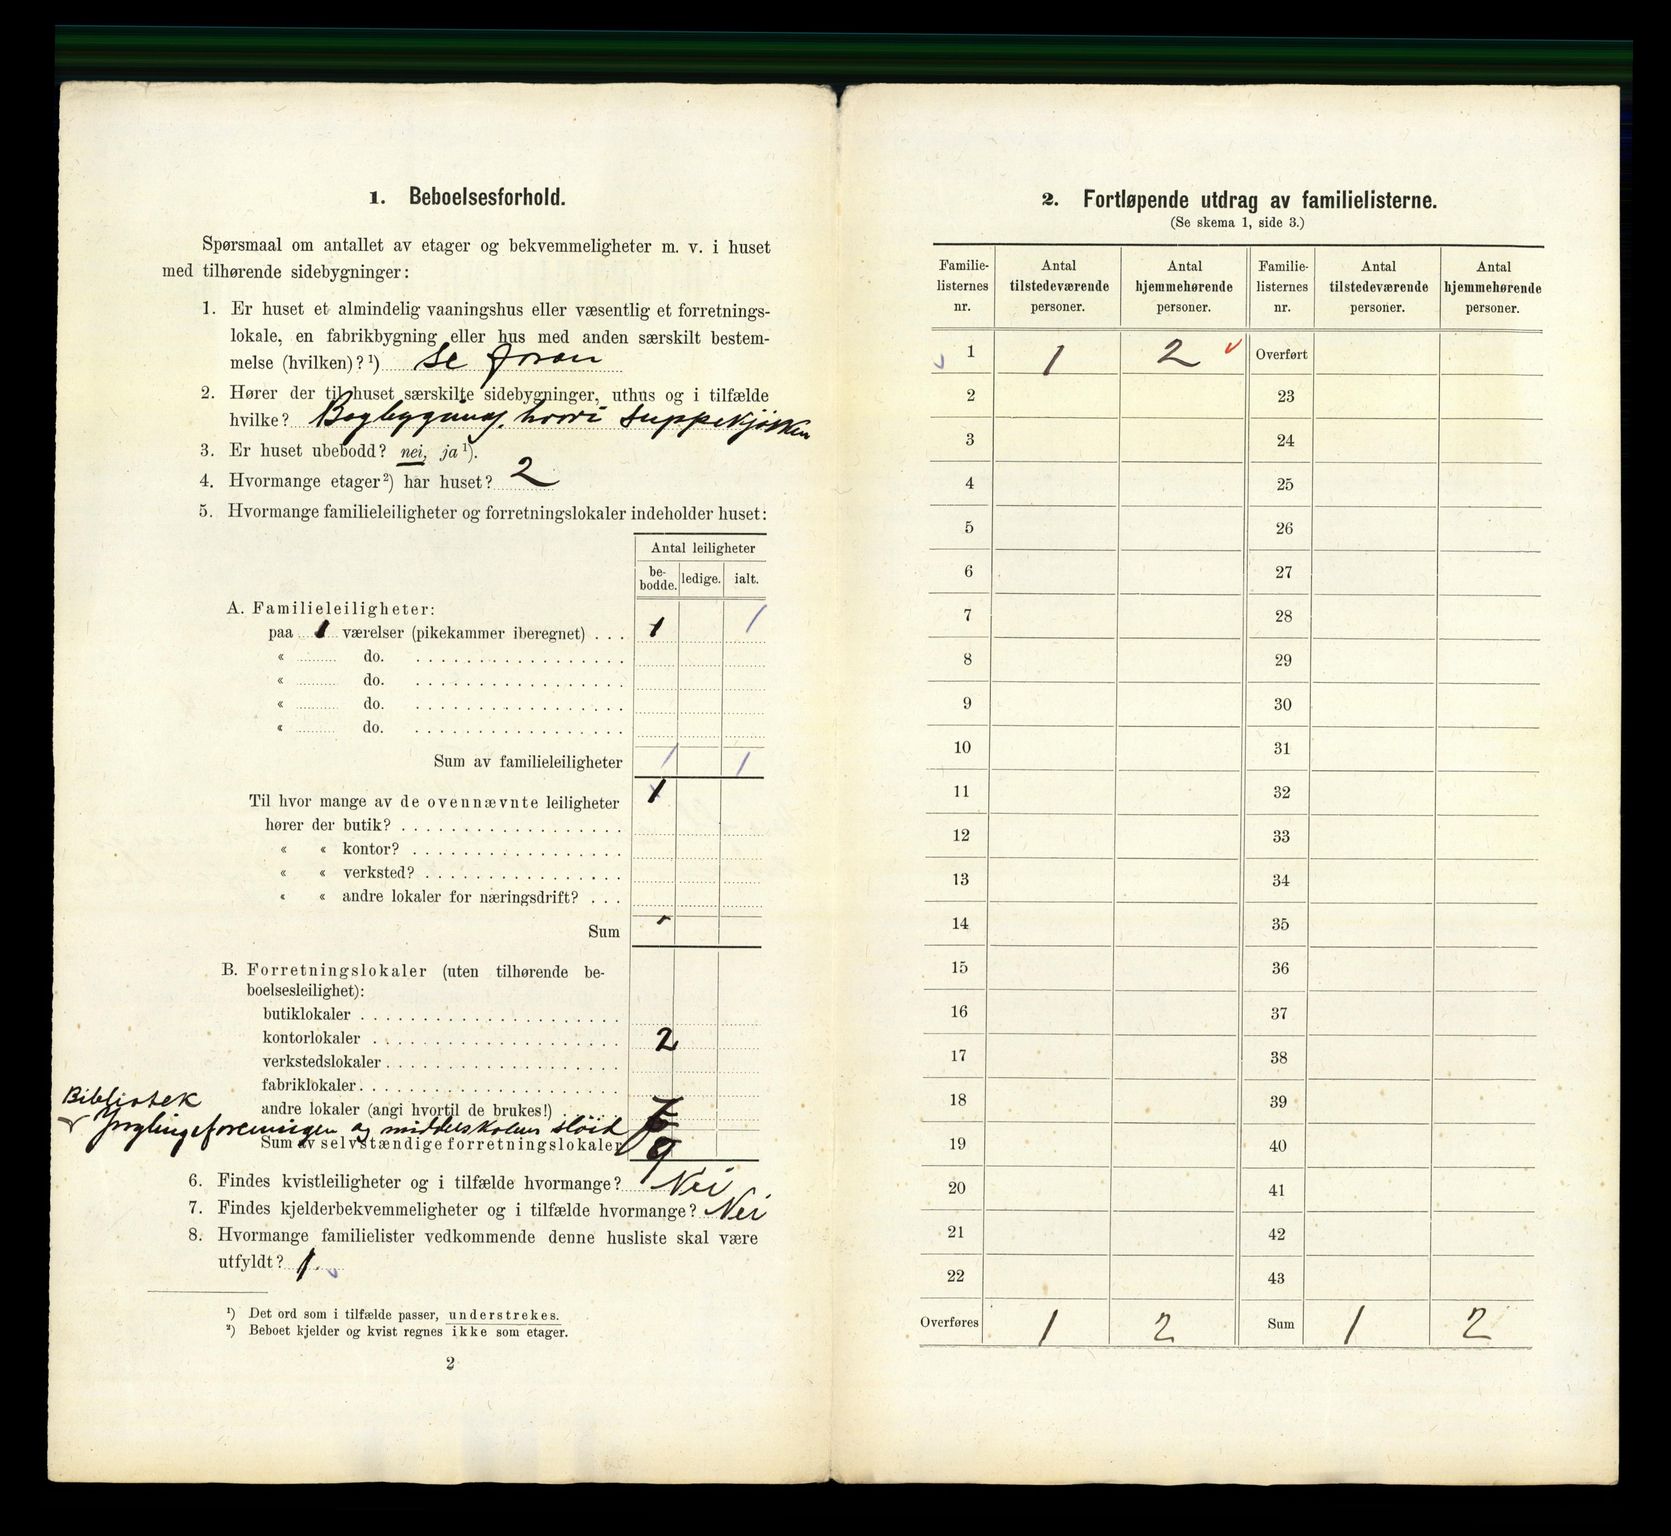 1. Beboelsesforhold.
Spørsmaal om antallet av etager og bekvemmeligheter m. v. i huset
med tilhørende sidebygninger:
1. Er huset et almindelig vaaningshus eller væsentlig et forretnings-
lokale, en fabrikbygning eller hus med anden særskilt bestem-
melse (hvilken)? ¹) se foran
2. Hører der til huset særskilte sidebygninger, uthus og i tilfælde
hvilke? Bagbygning, hvori suppekjøkken
3. Er huset ubebodd? nei, ja ¹).
4. Hvormange etager ²) har huset? 2
5. Hvormange familieleiligheter og forretningslokaler indeholder huset:
Antal leiligheter
be-
bodde. ledige. ialt.
A. Familieleiligheter:
paa 1 værelser (pikekammer iberegnet) . . . 1 1
« do.
« do.
« do.
« do.
Sum av familieleiligheter 1 1
Til hvor mange av de ovennævnte leiligheter 1
hører der butik?
« « kontor?
« « verksted?
« « andre lokaler for næringsdrift? . . .
Sum
B. Forretningslokaler (uten tilhørende be-
boelsesleilighet):
butiklokaler
kontorlokaler 2
verkstedslokaler
fabriklokaler
Bibliotek
andre lokaler (angi hvortil de brukes!) 7
Ynglingeforeningen og middelskolens sløid
Sum av selvstændige forretningslokaler 9
6. Findes kvistleiligheter og i tilfælde hvormange? Nei
7. Findes kjelderbekvemmeligheter og i tilfælde hvormange? Nei
8. Hvormange familielister vedkommende denne husliste skal være
utfyldt? 1.
¹) Det ord som i tilfælde passer, understrekes.
²) Beboet kjelder og kvist regnes ikke som etager.
2
2. Fortløpende utdrag av familielisterne.
(Se skema 1, side 3.)
Familie-
listernes
nr.
Antal
tilstedeværende
personer.
Antal
hjemmehørende
personer.
Familie-
listernes
nr.
Antal
tilstedeværende
personer.
Antal
hjemmehørende
personer.
1 1 2 Overført
2 23
3 24
4 25
5 26
6 27
7 28
8 29
9 30
10 31
11 32
12 33
13 34
14 35
15 36
16 37
17 38
18 39
19 40
20 41
21 42
22 43
Overføres 1 2 Sum 1 2